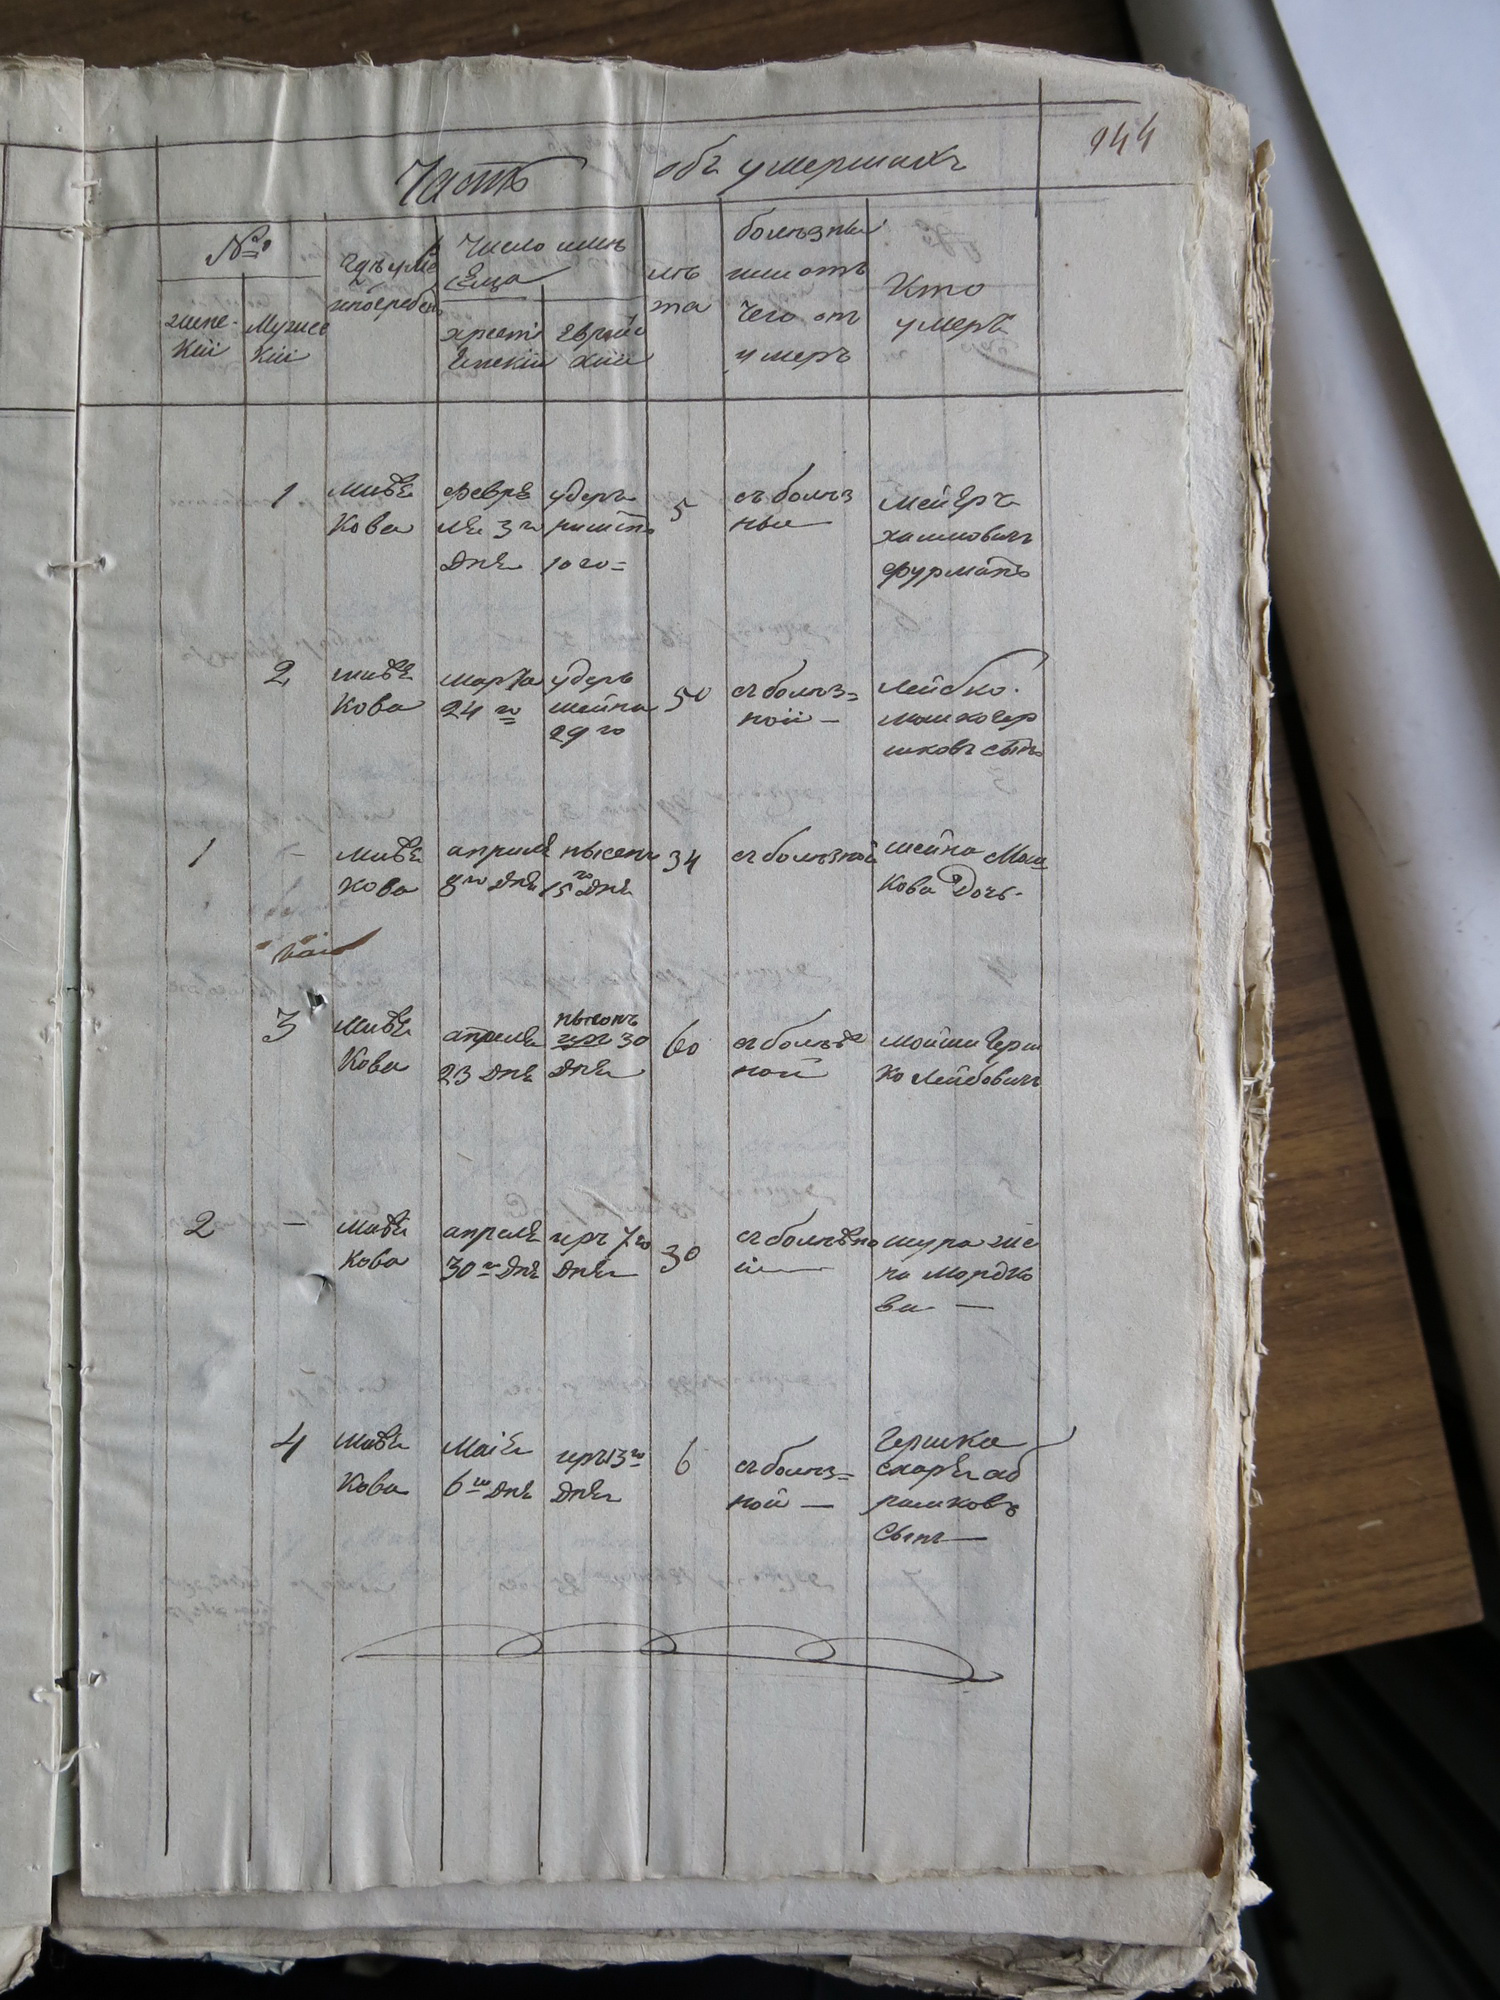 944
Часть объ умершихъ
№
женс-
кій
Мужес
кій
гдѣ уме
и погребенъ
Число и мѣ
сеца
христі
енскій
еврейс
кій
лѣ
та
болѣзнь
или отъ
чего от
умеръ
Кто
умеръ
1
кова
февра
ля 3го
дня
удеръ
ришенъ
10 го =
5
съ болѣз
ньи
Мейеръ
хаимовичъ
фурманъ
2
кова
марта
24 го
удеръ
шейна
29 го
50
съ болѣз=
ной —
Лейбко
мошко гер
шковъ сынъ
1
—
кова
апреля
8го дня
нысенъ
15го дня
34
съ болѣзной
шейна Мош
кова дочь.
маія
3
кова
апреля
23 дня
нысонъ
30
дня
60
съ болѣз
ной
Мойши герш
ко Лейбовичъ
2
—
кова
апреля
30го дня
иръ 7го
дня
30
съ болѣзно
й —
шура
Мордко
ва —
4
кова
Маія
6го дня
иръ 13го
дня
6
съ болѣз=
ной —
Гершка
аб
рамковъ
сынъ —